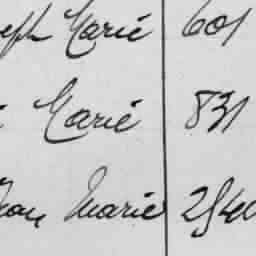 eph Marie 601
Marie 831
Jean Marie 2540